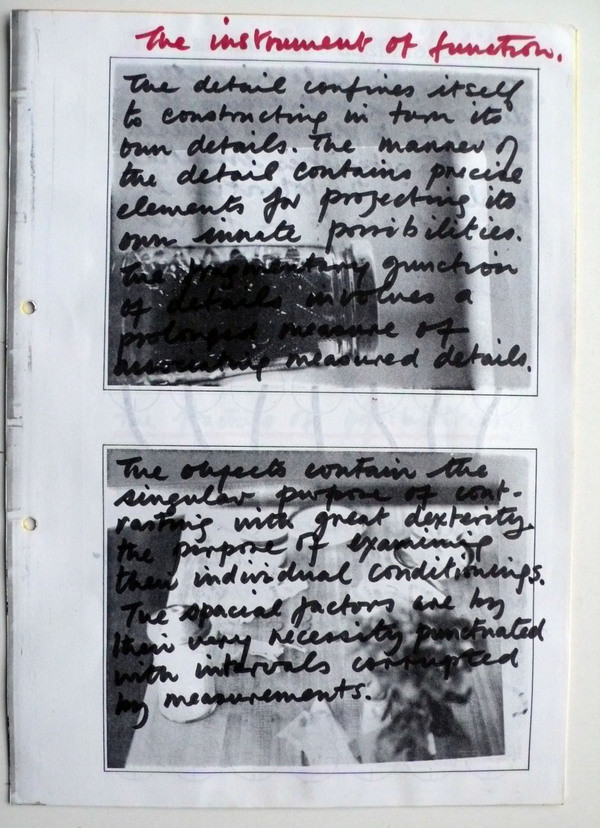 The instrument of function.
The detail confines itself
to constructing in turn its
own details. The manner of
the detail contains precise
elements for projecting its
own innate possibilities.
The fragmentary function
of details involves a
prolonged measure of
associating measured details.
The objects contain the
singular purpose of cont-
rasting with great dexterity,
the purpose of examining
their individual conditionings.
The spacial factors are by
their very necessity punctuated
with intervals corrupted
by measurements.